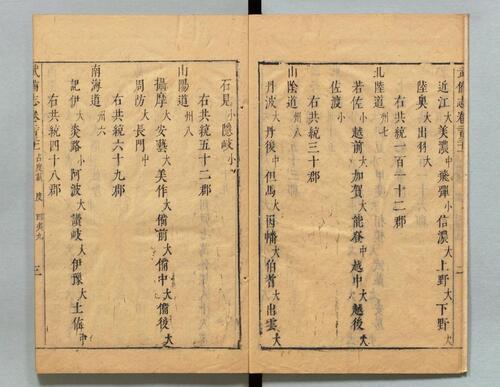 近江大美濃中飛彈小信濃大上野大下野大
陸奧大出羽大
右共統一百一十二郡
北陸道州七
若佐小越前大加賀大能登中越中大越後大
佐渡小
右共統三十郡
山陰道州八
丹波大丹後中但馬大因幡大伯耆大出雲大
石見小隠岐小
右共統五十二郡
山陽道州八
攝摩大安藝大美作大備前大備中大備後大
周防大長門中
右共統六十九郡
南海道州六
記伊大炎路小阿波大讃岐大伊豫大土佐中
右共統四十八郡